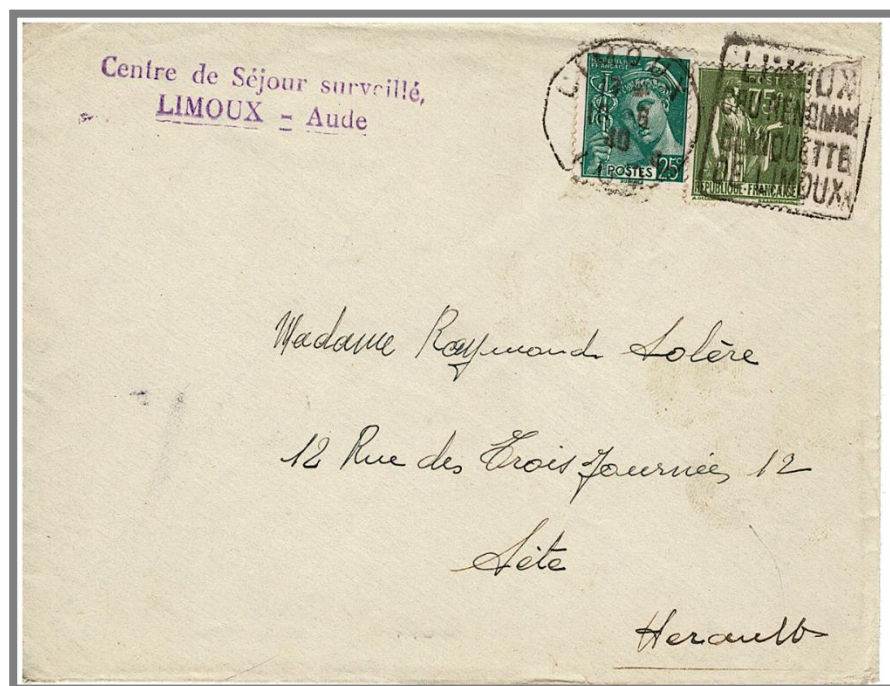 Centre de Séjour surveillé,
LIMOUX - Aude
LIMOUX
POSTES 25c
75c
REPUBLIQUE-FRANÇAISE
LIMOUX
BLANQUETTE
DE LIMOUX
Madame Raymond Solère
12 Rue des Trois Journées 12
Sète
Herault